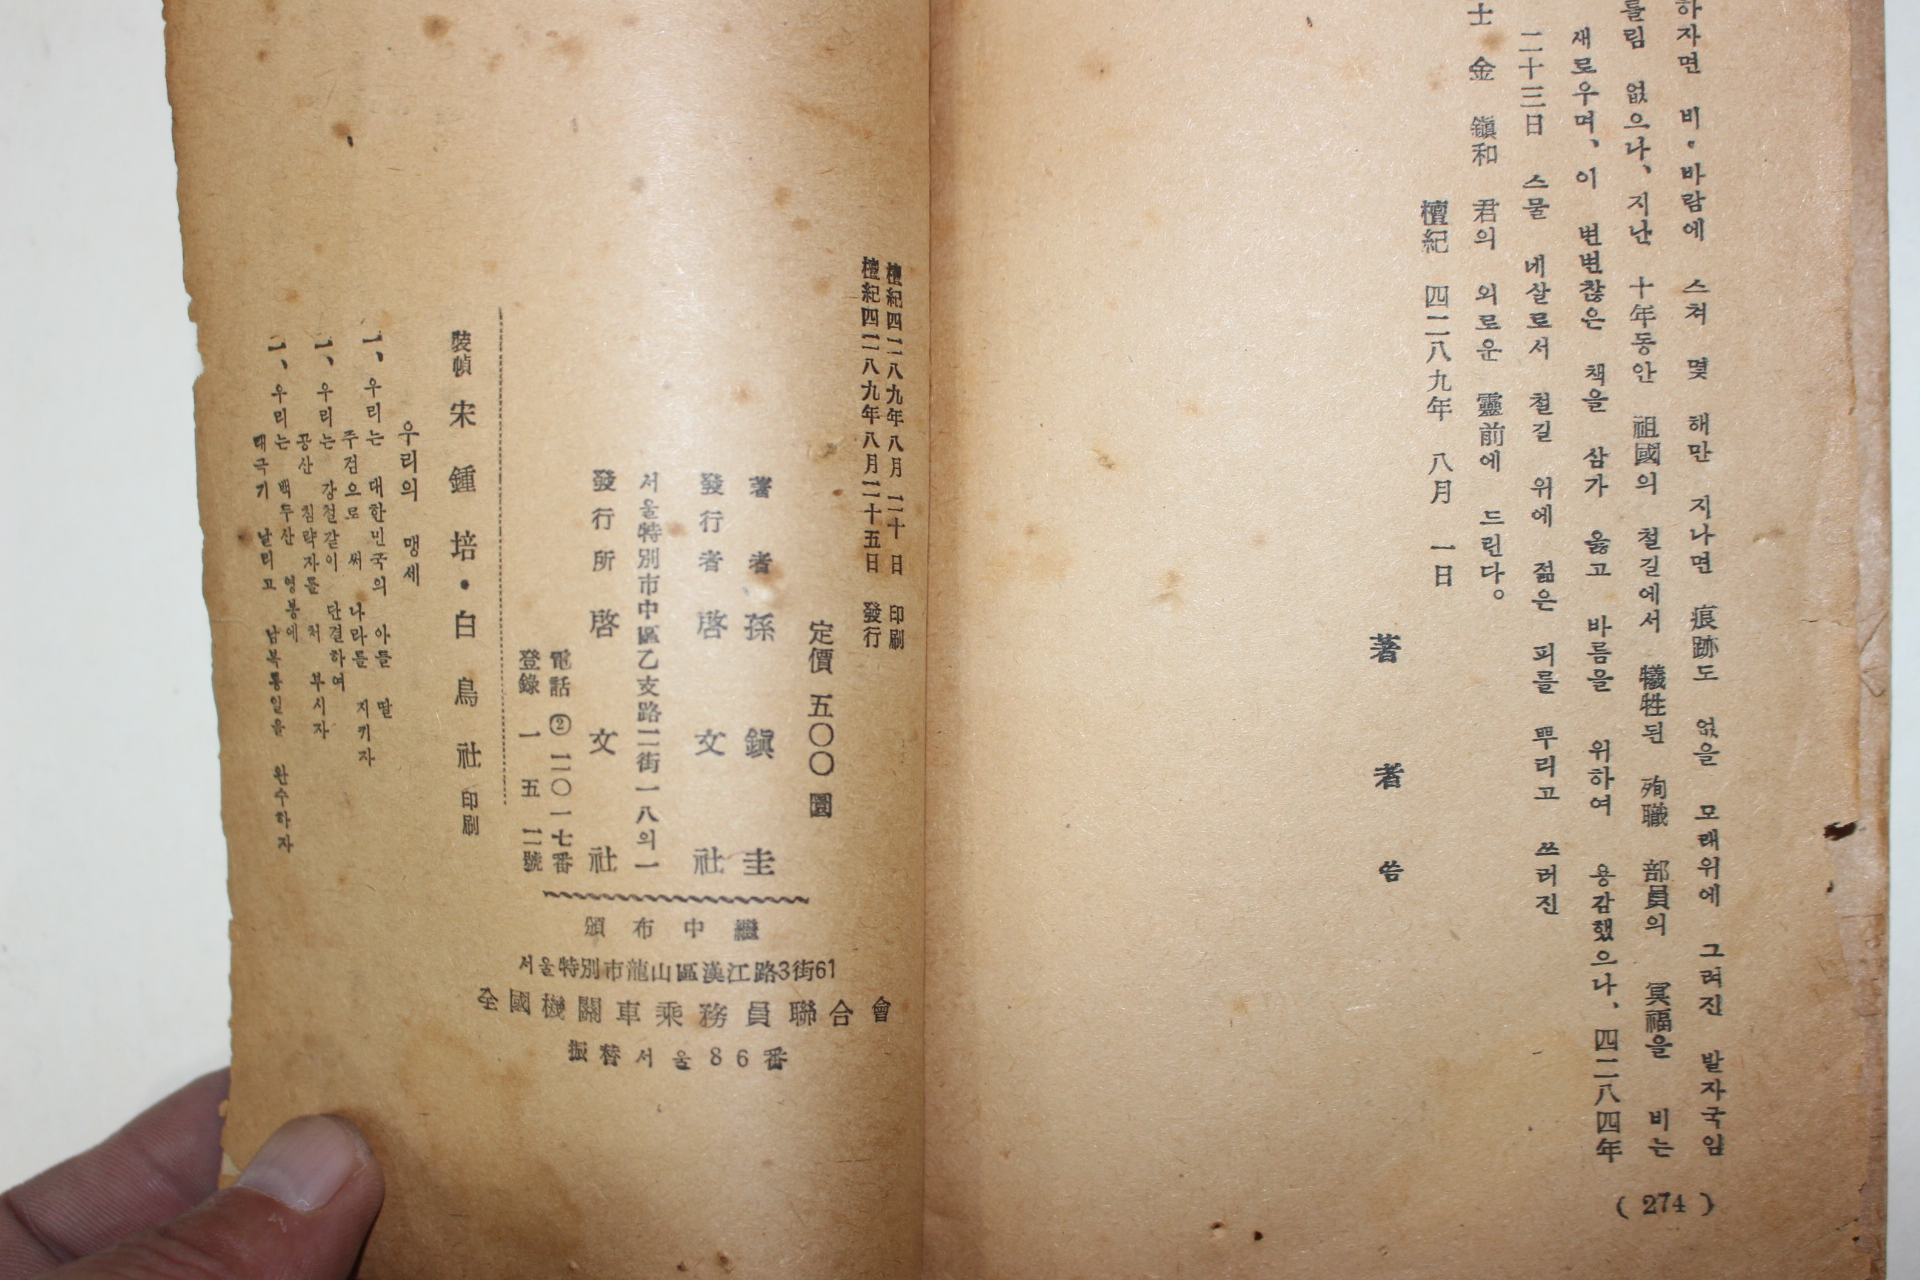 하자면 비·바람에 스쳐 몇 해만 지나면 痕跡도 없을 모래위에 그려진 발자국임
를림 없으나、지난 十年동안 祖國의 철길에서 犧牲된 殉職 部員의 冥福을 비는
새로우며、이 변변찮은 책을 삼가 옳고 바름을 위하여 용감했으나、四二八四年
二十三日 스물 네살로서 철길 위에 젊은 피를 뿌리고 쓰러진
士 金 鎭和 君의 외로운 靈前에 드린다。
檀紀 四二八九年 八月 一日
著 者 씀
( 274 )
檀紀四二八九年八月二十日 印刷
檀紀四二八九年八月二十五日 發行
定價 五〇〇 圜
著者 孫鎭圭
發行者 啓文社
서울特別市中區乙支路二街一八의一
發行所 啓文社
電話 ② 二〇一七番
登錄 一五二號
頒布中繼
서울特別市龍山區漢江路3街61
全國機關車乘務員聯合會
振替서울86番
裝幀 宋鍾培・白鳥社 印刷
우리의 맹세
一、우리는 대한민국의 아들 딸
주검으로 써 나라를 지키자
一、우리는 강철같이 단결하여
공산 침략자를 처 부시자
一、우리는 백두산 영봉에
태극기 날리고 남북통일을 완수하자